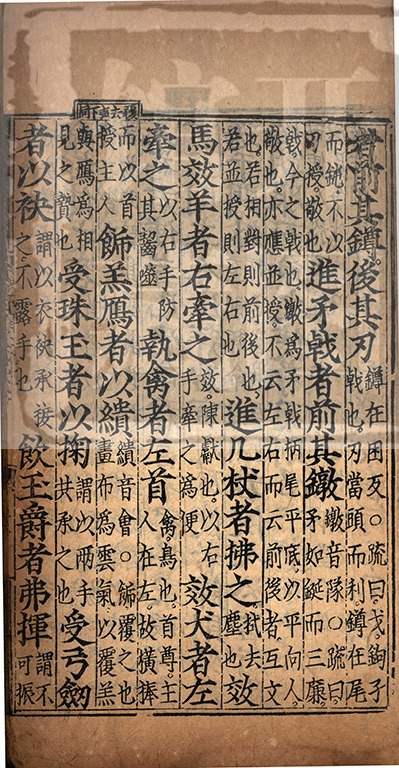 者前其鐏後其刃鐏在困反○疏曰戈鉤孑戟也刃當頭而利鐏在尾
而鈍不以刃授敬也進矛戟者前其鐓鐓音隊○疏曰矛如鋋而三廉
戟今之戟也鐓為矛戟柄尾平底以平向人敬也亦應並授不云左右而云前後者互文
也若相對則前後也君並授則左右也進几杖者拂之拭去塵也效
馬效羊者右牽之效陳獻也以右手牽之為便效犬者左
牽之以右手防其齧噬執禽者左首禽鳥也首尊主人在左故橫捧
而以首授主人飾羔鴈者以繢繢音會○飾覆之也畫布為雲氣以覆羔
與鴈為相見之贄也受珠玉者以掬謂以兩手共承之也受弓劒
者以袂謂以衣袂承接之不露手也飲玉爵者弗揮謂不可振